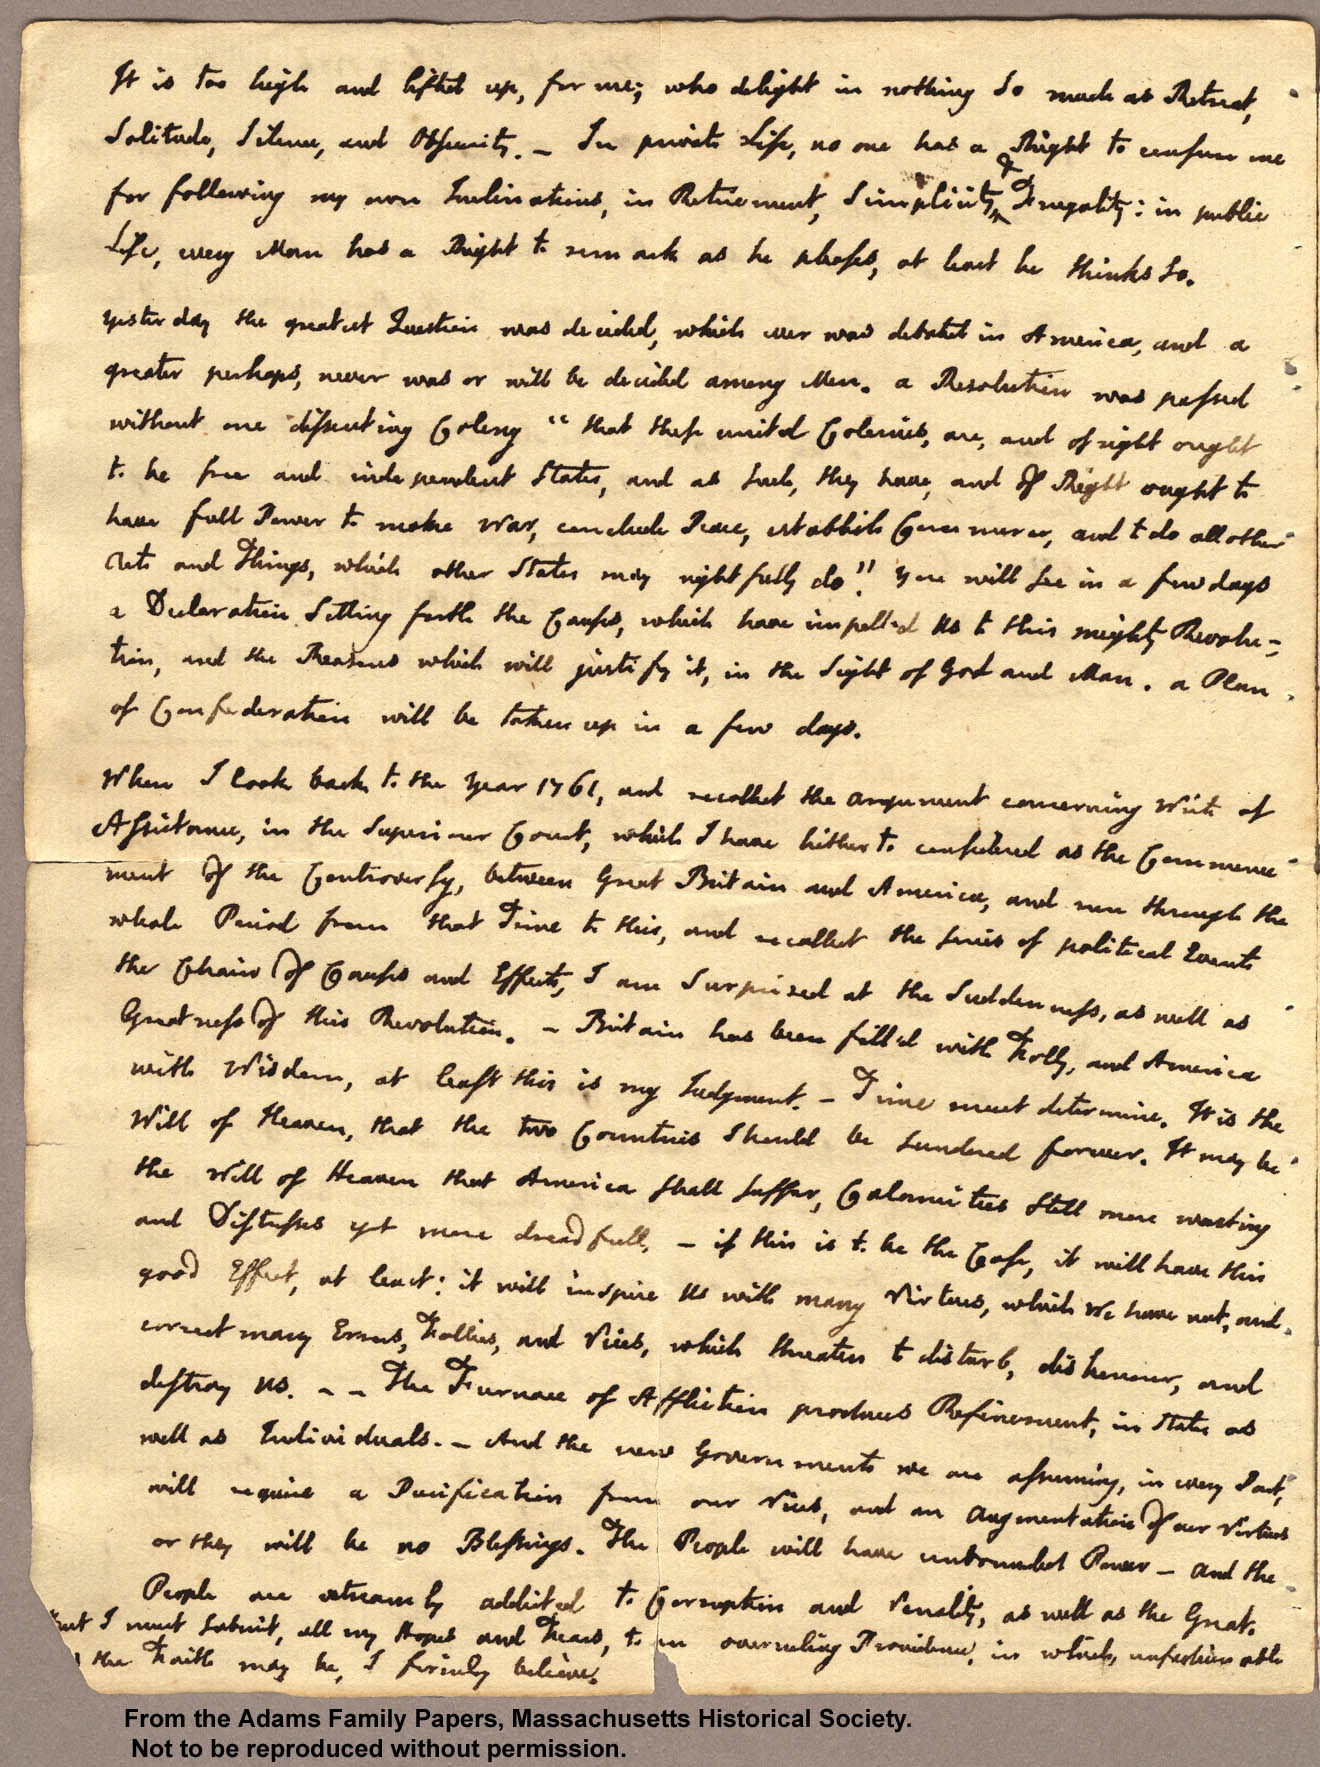 It is too high and lifted up, for me; who delight in nothing so much as Retreat,
Solitude, Silence, and Obscurity. — In private Life, no one has a Right to censure me
for following my own Inclinations, in Retirement, Simplicity, & Frugality: in public
Life, every Man has a Right to remark as he pleases, at least he thinks so.
Yesterday the greatest Question was decided, which ever was debated in America, and a
greater perhaps, never was or will be decided among Men. a Resolution was passed
without one dissenting Colony "that these united Colonies, are, and of right ought
to be free and independent States, and as such, they have, and of Right ought to
have full Power to make War, conclude Peace, establish Commerce, and to do all other
Acts and Things, which other States may rightfully do". you will see in a few days
a Declaration setting forth the Causes, which have impell'd us to this mighty Revolu-
tion, and the Reasons which will justify it, in the Sight of God and Man. a Plan
of Confederation will be taken up in a few days.
When I look back to the Year 1761, and recollect the Argument concerning Writs of
Assistance, in the Superiour Court, which I have hitherto considered as the Commence
ment of the Controversy, between Great Britain and America, and run through the
whole Period from that Time to this, and recollect the series of political Events
the Chain of Causes and Effects, I am surprized at the Suddenness, as well as
Greatness of this Revolution. — Britain has been fill'd with Folly, and America
with Wisdom, at least this is my Judgment. — Time must determine. It is the
Will of Heaven, that the two Countries should be sundered forever. It may be
the Will of Heaven that America shall suffer, Calamities still more wasting
and Distresses yet more dreadfull. — if this is to be the Case, it will have this
good Effect, at least: it will inspire us with many Virtues, which we have not, and
correct many Errors, Follies, and Vices, which threaten to disturb, dishonour, and
destroy us. — — The Furnace of Affliction produces Refinement, in States as
well as Individuals. — And the new Governments we are assuming, in every Part,
will require a Purification from our Vices, and an Augmentation of our Virtues
or they will be no Blessings. The People will have unbounded Power — and the
People are extreamly addicted to Corruption and Venality, as well as the Great.
But I must submit, all my Hopes and Fears, to an overruling Providence, in which, unfashionable
the Faith may be, I firmly believe.
From the Adams Family Papers, Massachusetts Historical Society.
Not to be reproduced without permission.